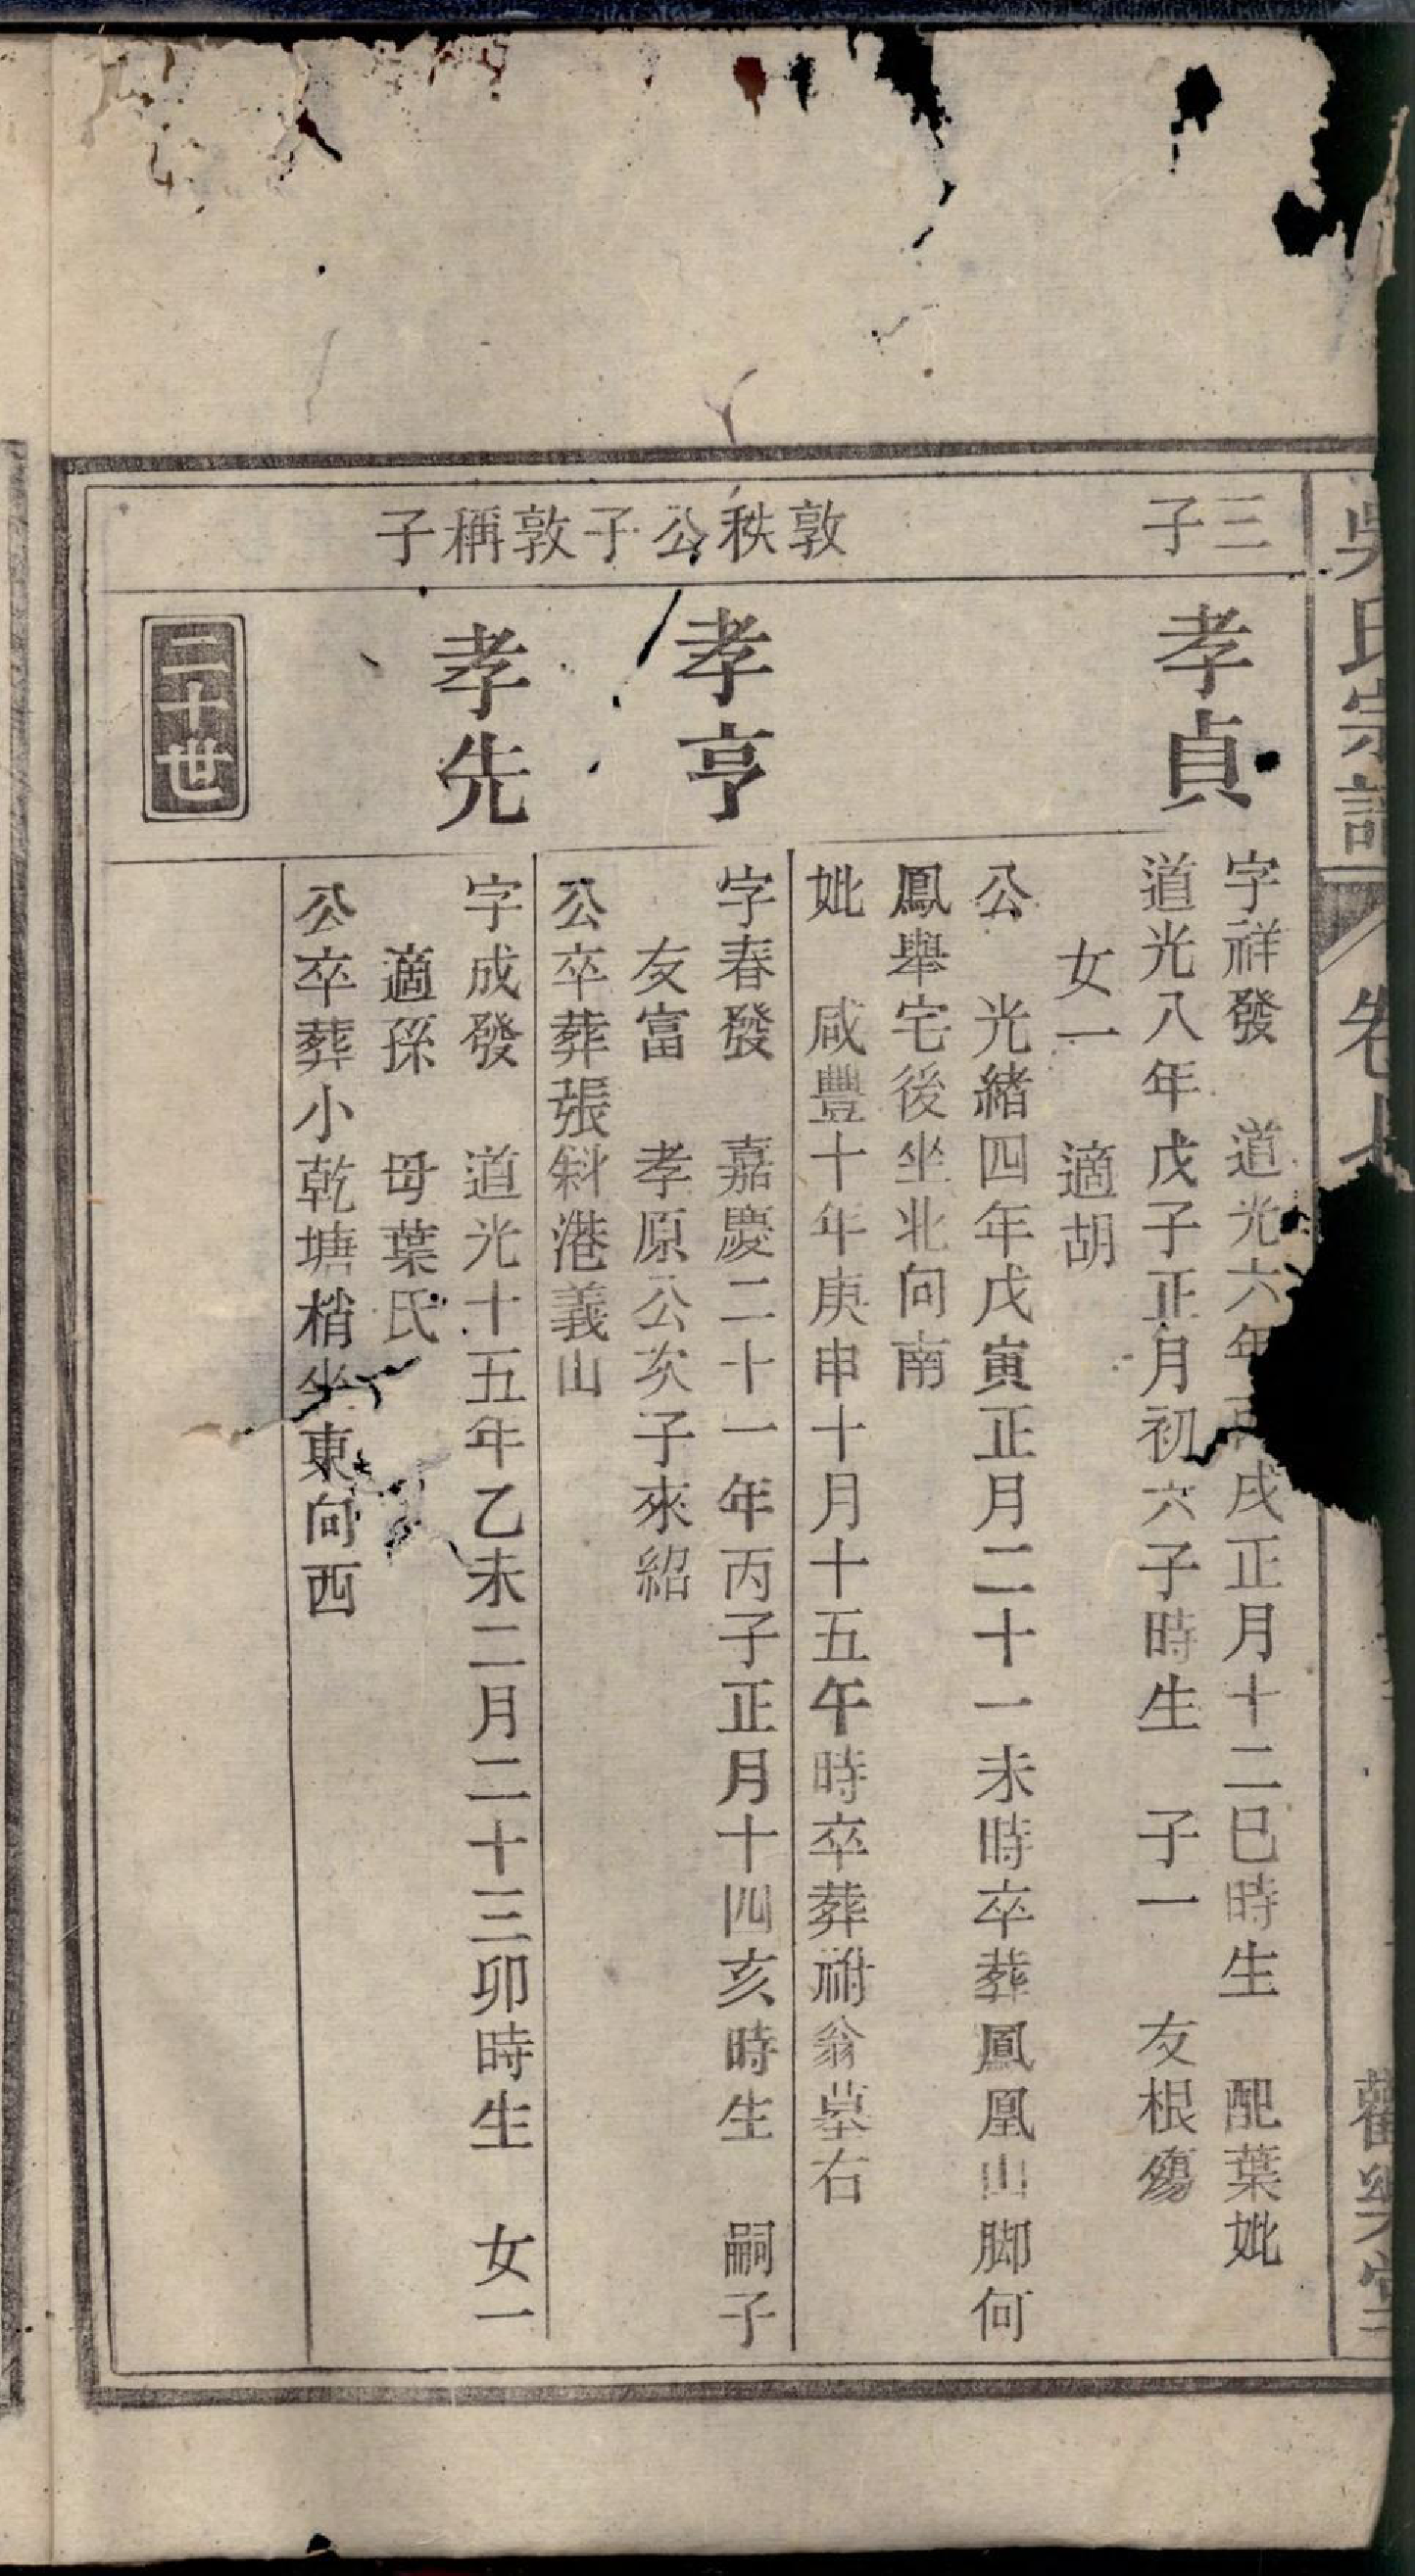 吳氏宗譜 卷
三子
孝貞
字祥發 道光六年丙戌正月十二巳時生 配葉妣
道光八年戊子正月初六子時生 子一 友根殤
女一 適胡
公 光緒四年戊寅正月二十一未時卒葬鳳凰山脚何
鳳舉宅後坐北向南
妣 咸豐十年庚申十月十五午時卒葬祔翁墓右
敦秩公子
孝亨
字春發 嘉慶二十一年丙子正月十四亥時生 嗣子
友富 孝原公次子來紹
公卒葬張斜港義山
敦稱子
孝先
字成發 道光十五年乙未二月二十三卯時生 女一
適孫 母葉氏
公卒葬小乾塘梢坐東向西
二十世